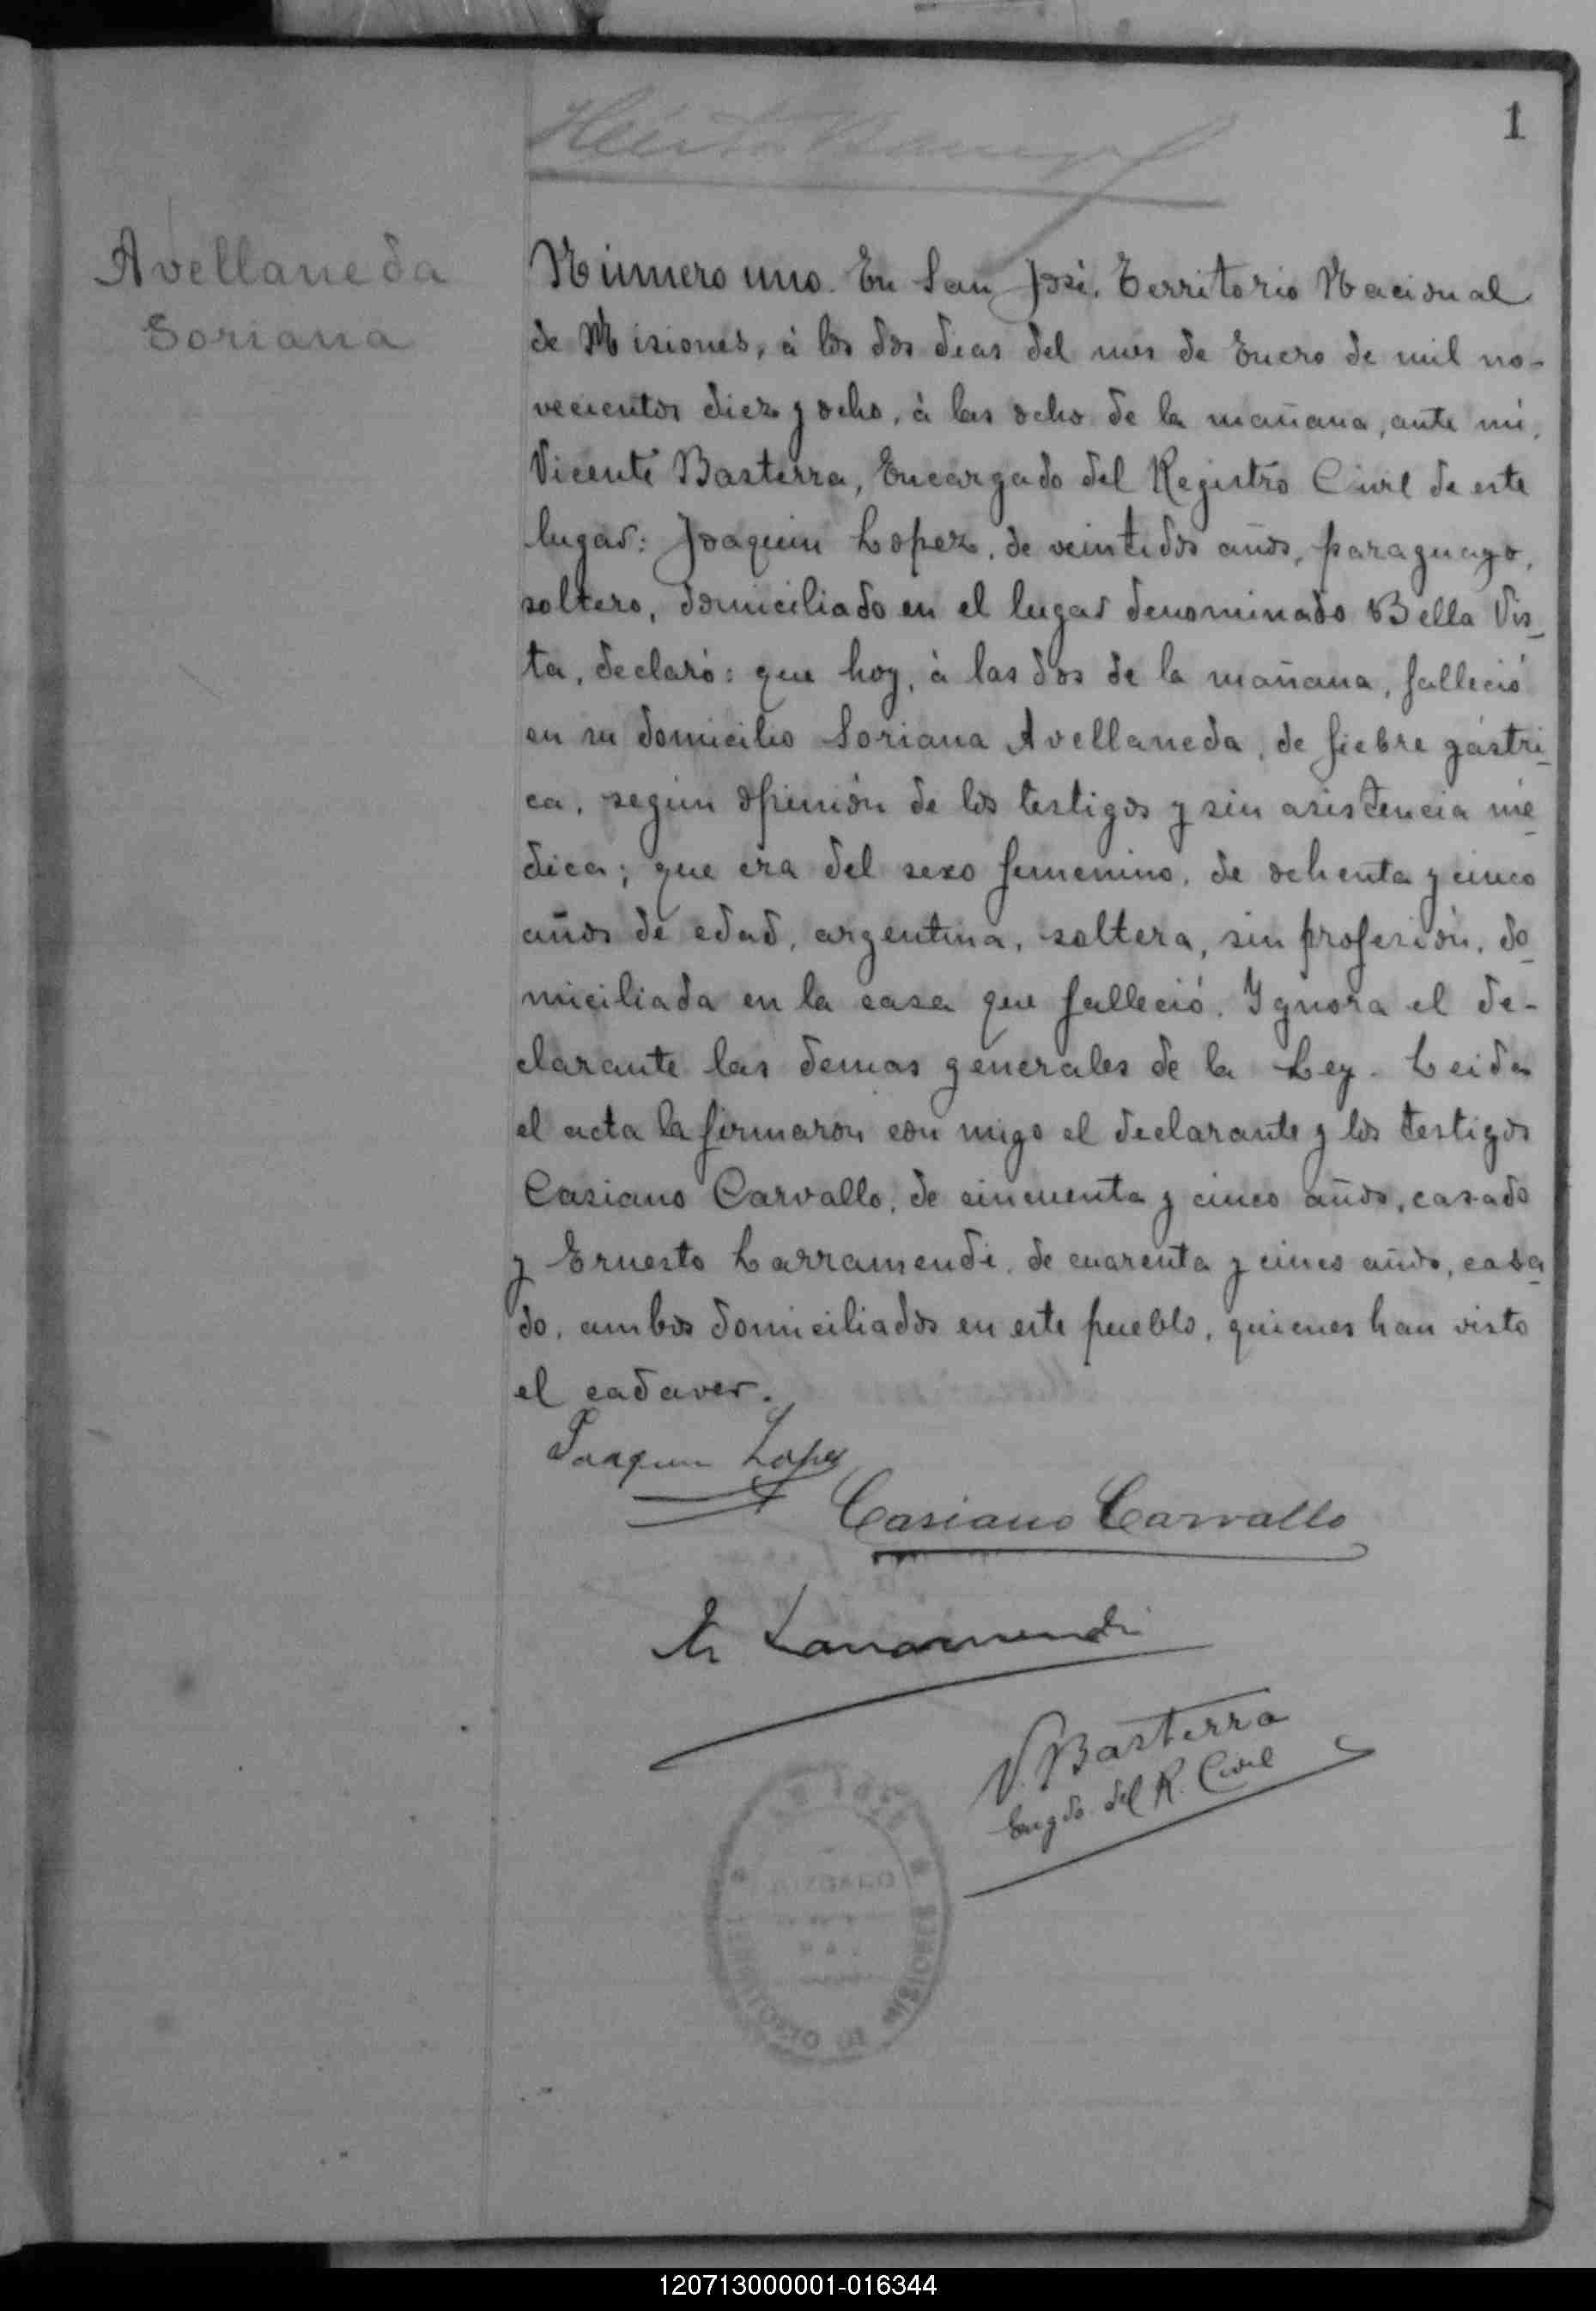 1
Avellaneda
Soriana
Número uno. En San José, Territorio Nacional
de Misiones, à los dos dias del mes de Enero de mil no-
vecientos diez y ocho, à las ocho de la mañana, ante mi,
Vicente Basterra, Encargado del Registro Civil de este
lugar: Joaquin Lopez, de veintidos años, paraguayo,
soltero, domiciliado en el lugar denominado Bella Vis-
ta, declaró: que hoy, à las dos de la mañana, falleció
en su domicilio Soriana Avellaneda, de fiebre gástri-
ca, según opinión de los testigos y sin asistencia mé-
dica; que era del sexo femenino, de ochenta y cinco
años de edad, argentina, soltera, sin profesión, do-
miciliada en la casa que falleció. Ignora el de-
clarante las demas generales de la Ley. Leida
el acta la firmaron con migo el declarante y los testigos
Casiano Carvallo, de cincuenta y cinco años, casado
y Ernesto Larramendi, de cuarenta y cinco años, casa-
do, ambos domiciliados en este pueblo, quienes han visto
el cadaver.
Joaquin Lopez
Casiano Carvallo
Larramendi
V. Basterra
Engdo. del R. Civil
120713000001-016344